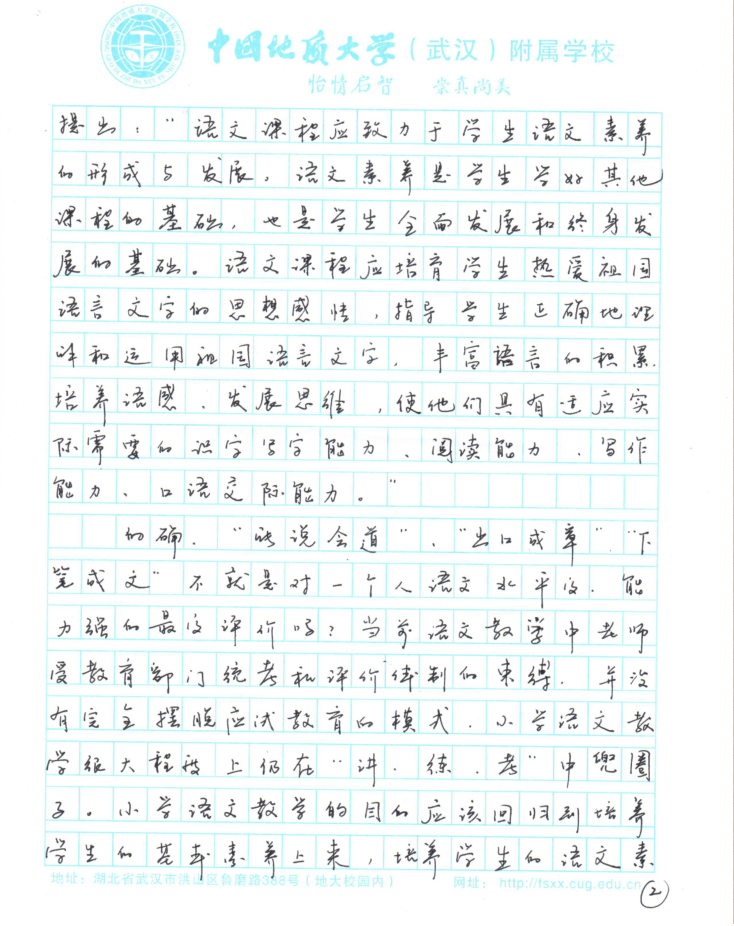 中国地质大学（武汉）附属学校
怡情启智 崇真尚美
提出：“语文课程应致力于学生语文素养
的形成与发展，语文素养是学生学好其他
课程的基础，也是学生全面发展和终身发
展的基础。语文课程应培育学生热爱祖国
语言文字的思想感情，指导学生正确地理
解和运用祖国语言文字，丰富語言的积累，
培养语感、发展思维，使他们具有适应实
际需要的识字写字能力、阅读能力、写作
能力、口语交际能力。”
的确，“能说会道”、“出口成章”“下
笔成文”不就是对一个人语文水平高、能
力强的最高评价吗？当前语文教学中老师
受教育部门统考和评价体制的束缚，并没
有完全摆脱应试教育的模式，小学语文教
学很大程度上仍在“讲、练、考”中兜圈
子。小学语文教学的目的应该回归到培养
学生的基本素养上来，培养学生的语文素
地址：湖北省武汉市洪山区鲁磨路388号（地大校园内） 网址：http://fsxx.cug.edu.cn
2